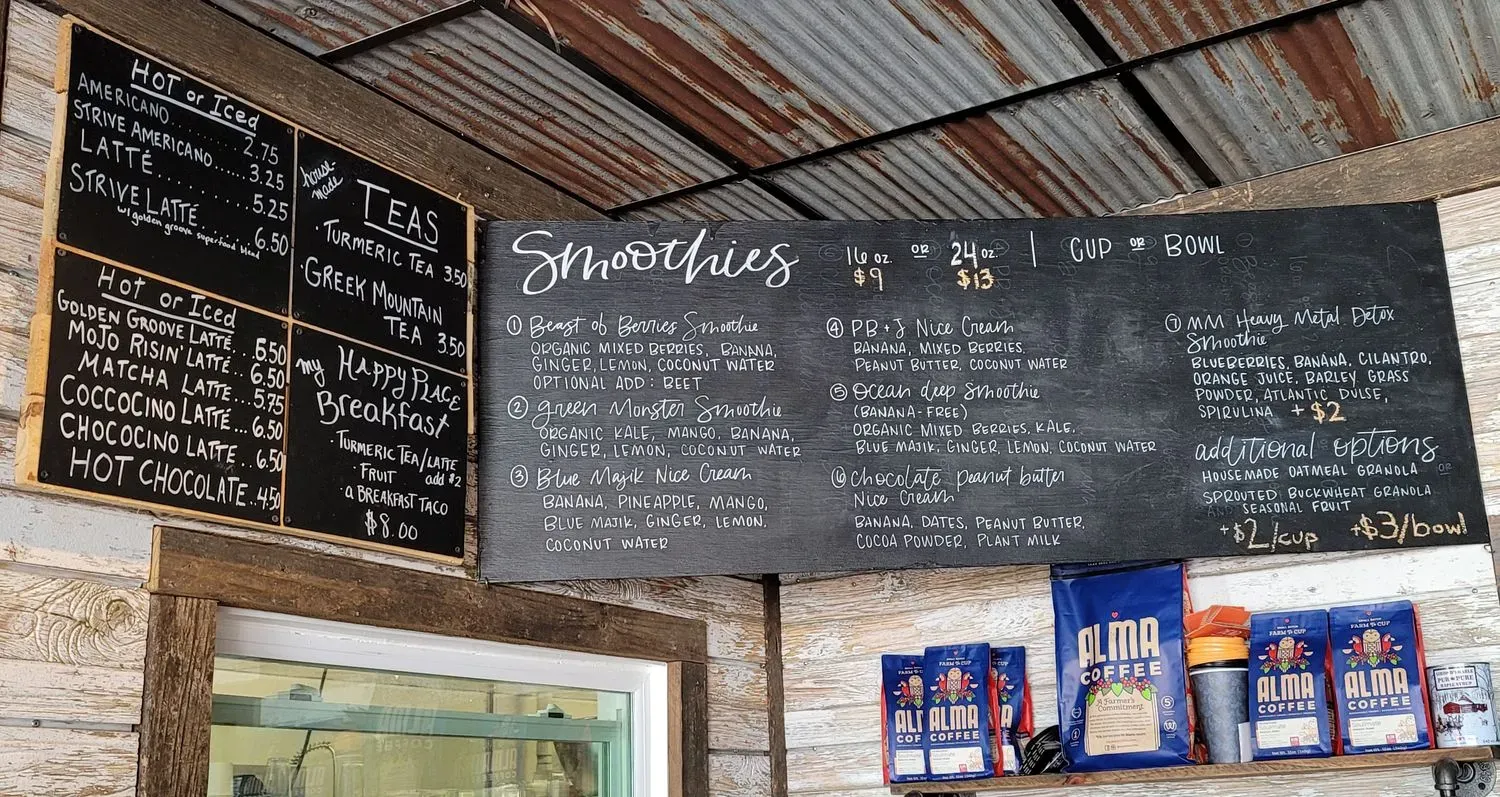 HOT or Iced
AMERICANO........2.75
STRIVE AMERICANO......3.25
LATTÉ........5.25
STRIVE LATTÉ........6.50
w/ golden groove superfood blend
Hot or Iced
GOLDEN GROOVE LATTÉ..6.50
MOJO RISIN' LATTÉ..6.50
MATCHA LATTE...5.75
COCCOCINO LATTÉ...6.50
CHOCOCINO LATTE..6.50
HOT CHOCOLATE..4.50
house-made
TEAS
·TURMERIC TEA 3.50
·GREEK MOUNTAIN
TEA 3.50
my HAPPY PLACE
Breakfast
·TURMERIC TEA/LATTE
add $2
·FRUIT
·a BREAKFAST TACO
$8.00
Smoothies
16 oz. OR 24 oz. | CUP OR BOWL
$9 $13
① Beast of Berries Smoothie
ORGANIC MIXED BERRIES, BANANA,
GINGER, LEMON, COCONUT WATER
OPTIONAL ADD: BEET
② Green Monster Smoothie
ORGANIC KALE, MANGO, BANANA,
GINGER, LEMON, COCONUT WATER
③ Blue Majik Nice Cream
BANANA, PINEAPPLE, MANGO,
BLUE MAJIK, GINGER, LEMON,
COCONUT WATER
④ PB+J Nice Cream
BANANA, MIXED BERRIES,
PEANUT BUTTER, COCONUT WATER
⑤ Ocean deep Smoothie
(BANANA-FREE)
ORGANIC MIXED BERRIES, KALE,
BLUE MAJIK, GINGER, LEMON, COCONUT WATER
⑥ Chocolate peanut butter
Nice Cream
BANANA, DATES, PEANUT BUTTER,
COCOA POWDER, PLANT MILK
⑦ MM Heavy Metal Detox
Smoothie
BLUEBERRIES, BANANA, CILANTRO,
ORANGE JUICE, BARLEY GRASS
POWDER, ATLANTIC DULSE,
SPIRULINA + $2
additional options
HOUSEMADE OATMEAL GRANOLA OR
SPROUTED BUCKWHEAT GRANOLA
AND SEASONAL FRUIT
+$2/cup +$3/bowl
ALMA
COFFEE
A Farmer's
Commitment
FARM TO CUP
ALMA
COFFEE
FARM TO CUP
ALMA
COFFEE
FARM TO CUP
ALMA
COFFEE